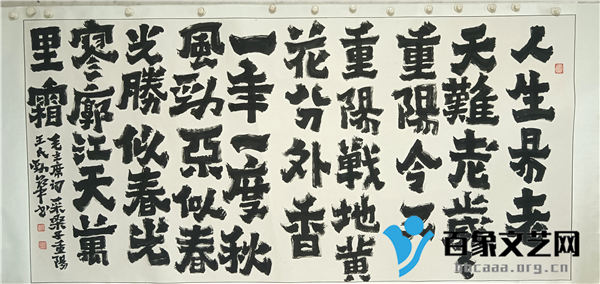 人生易老
天難老歲々
重陽今又
重陽戰地黄
花分外香
一年一度秋
風勁不似春
光勝似春光
寥廓江天萬
里霜
毛主席詞采桑子重陽
王氏
百象文艺网
bxcaaa.org.cn